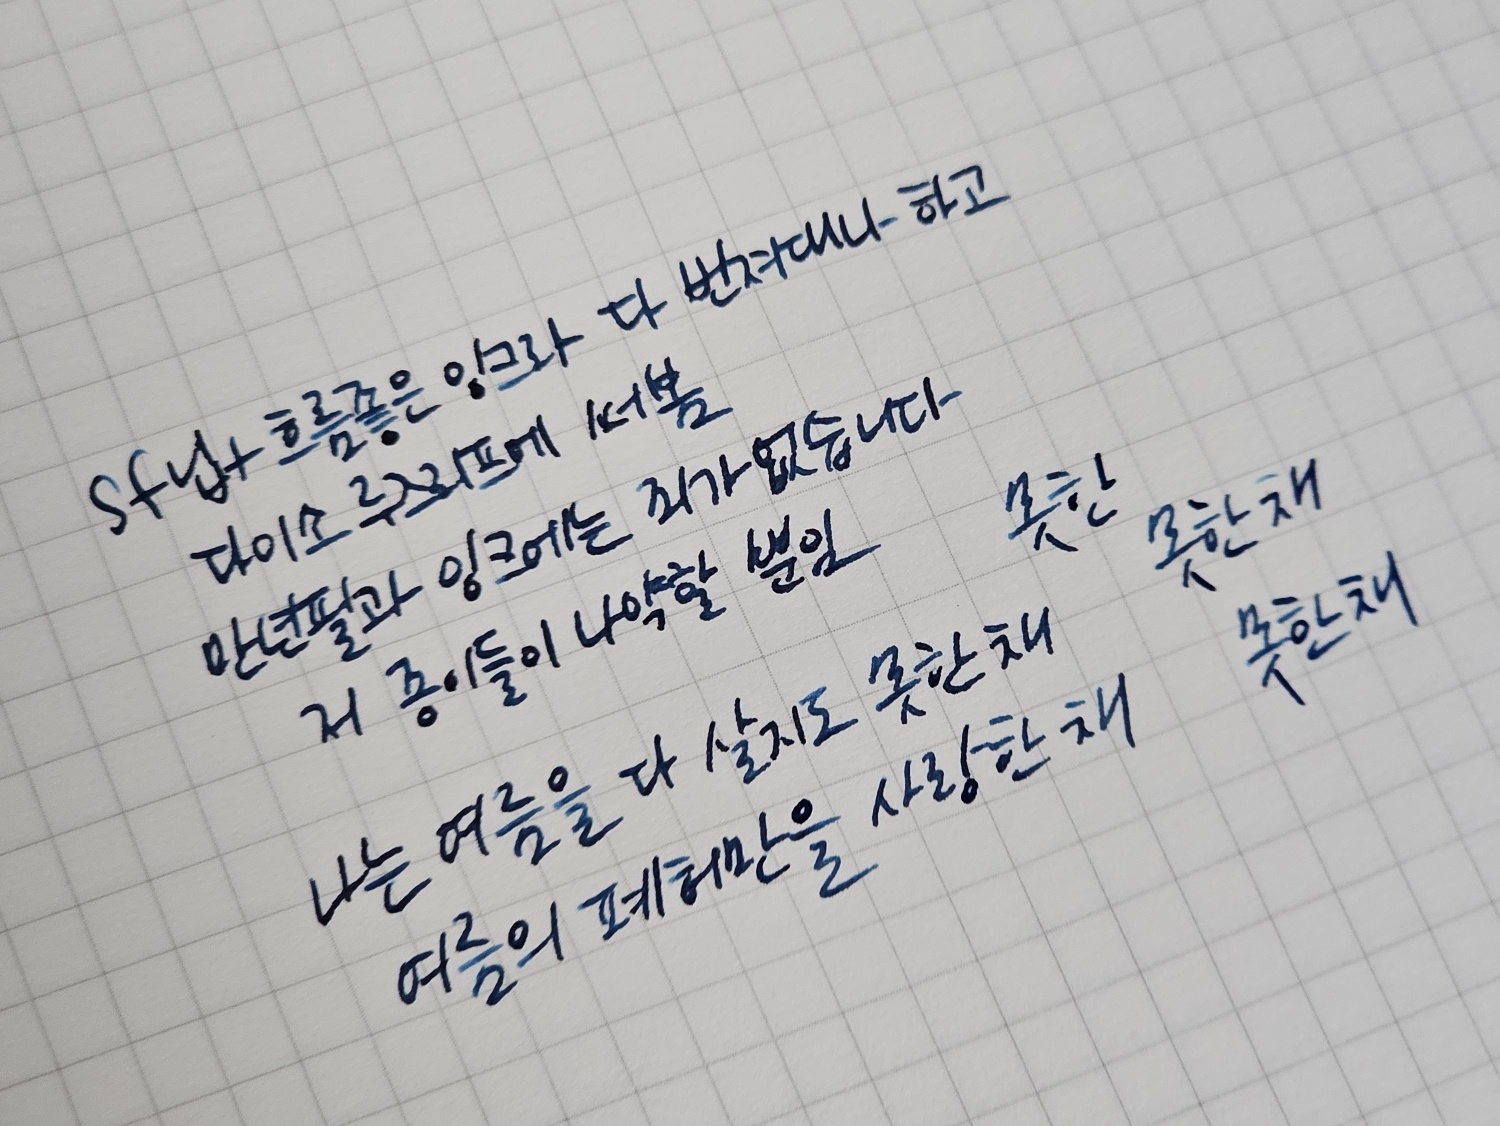 sf닙+ 흐름좋은 잉크라 다 번져대니 하고
다이소 루즈리프에 써봄
만년필과 잉크에는 죄가 없습니다
저 종이들이 나약할 뿐임
못한
못한채
못한채
나는 여름을 다 살지도 못한채
여름의 폐허만을 사랑한채